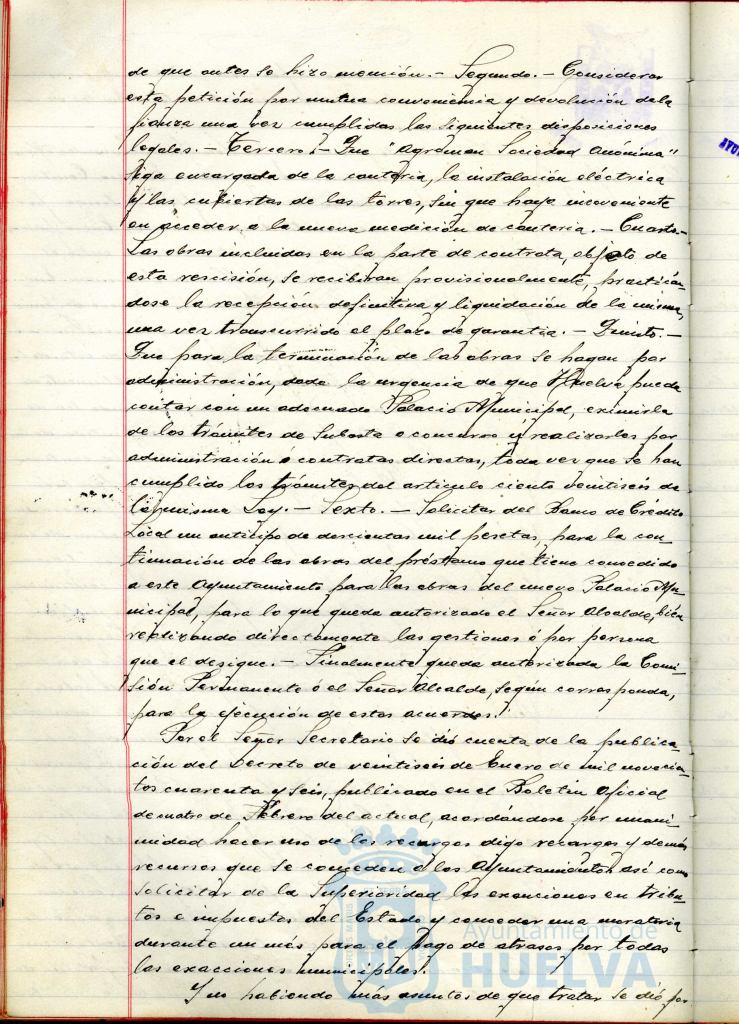 de que antes se hizo mención.- Segundo.- Considerar
esta petición por mutua conveniencia y devolución de la
fianza una vez cumplidas las siguientes disposiciones
legales.- Tercero.- Que "Agroman Sociedad Anónima"
siga encargada de la cantería, la instalación eléctrica
y las cubiertas de las torres, sin que haya inconveniente
en acceder a la nueva medición de cantería.- Cuarto.-
Las obras incluidas en la parte de contrata, objeto de
esta rescisión, se recibiran provisionalmente, practicán-
dose la recepción definitiva y liquidación de la misma,
una vez transcurrido el plazo de garantia.- Quinto.-
Que para la terminación de las obras se hagan por
administración, dada la urgencia de que Huelva pueda
contar con un adecuado Palacio Municipal, eximirla
de los trámites de Subasta o concurso y realizarlas por
administración o contratas directas, toda vez que se han
cumplido los trámites del articulo ciento veintiseis de
la misma Ley.- Sexto.- Solicitar del Banco de Crédito
Local un anticipo de doscientas mil pesetas, para la con-
tinuación de las obras del préstamo que tiene concedido
a este Ayuntamiento para las obras del nuevo Palacio Mu-
nicipal, para lo que queda autorizado el Señor Alcalde, bien
realizando directamente las gestiones ó por persona
que el designe.- Finalmente queda autorizada la Comi-
sión Permanente ó el Señor Alcalde, según corresponda,
para la ejecución de estos acuerdos.
Por el Señor Secretario se dió cuenta de la publica-
ción del Decreto de veintiseis de Enero de mil novecien-
tos cuarenta y seis, publicado en el Boletin Oficial
de cuatro de Febrero del actual, acordándose por unani-
midad hacer uso de los recargos digo recargos y demás
recursos que se conceden a los Ayuntamientos así como
solicitar de la Superioridad las exenciones en tribu-
tos e impuestos del Estado y conceder una moratoria
durante un més para el pago de atrasos por todas
las exacciones municipales.
Y no habiendo más asuntos de que tratar se dió por
Ayuntamiento de
HUELVA